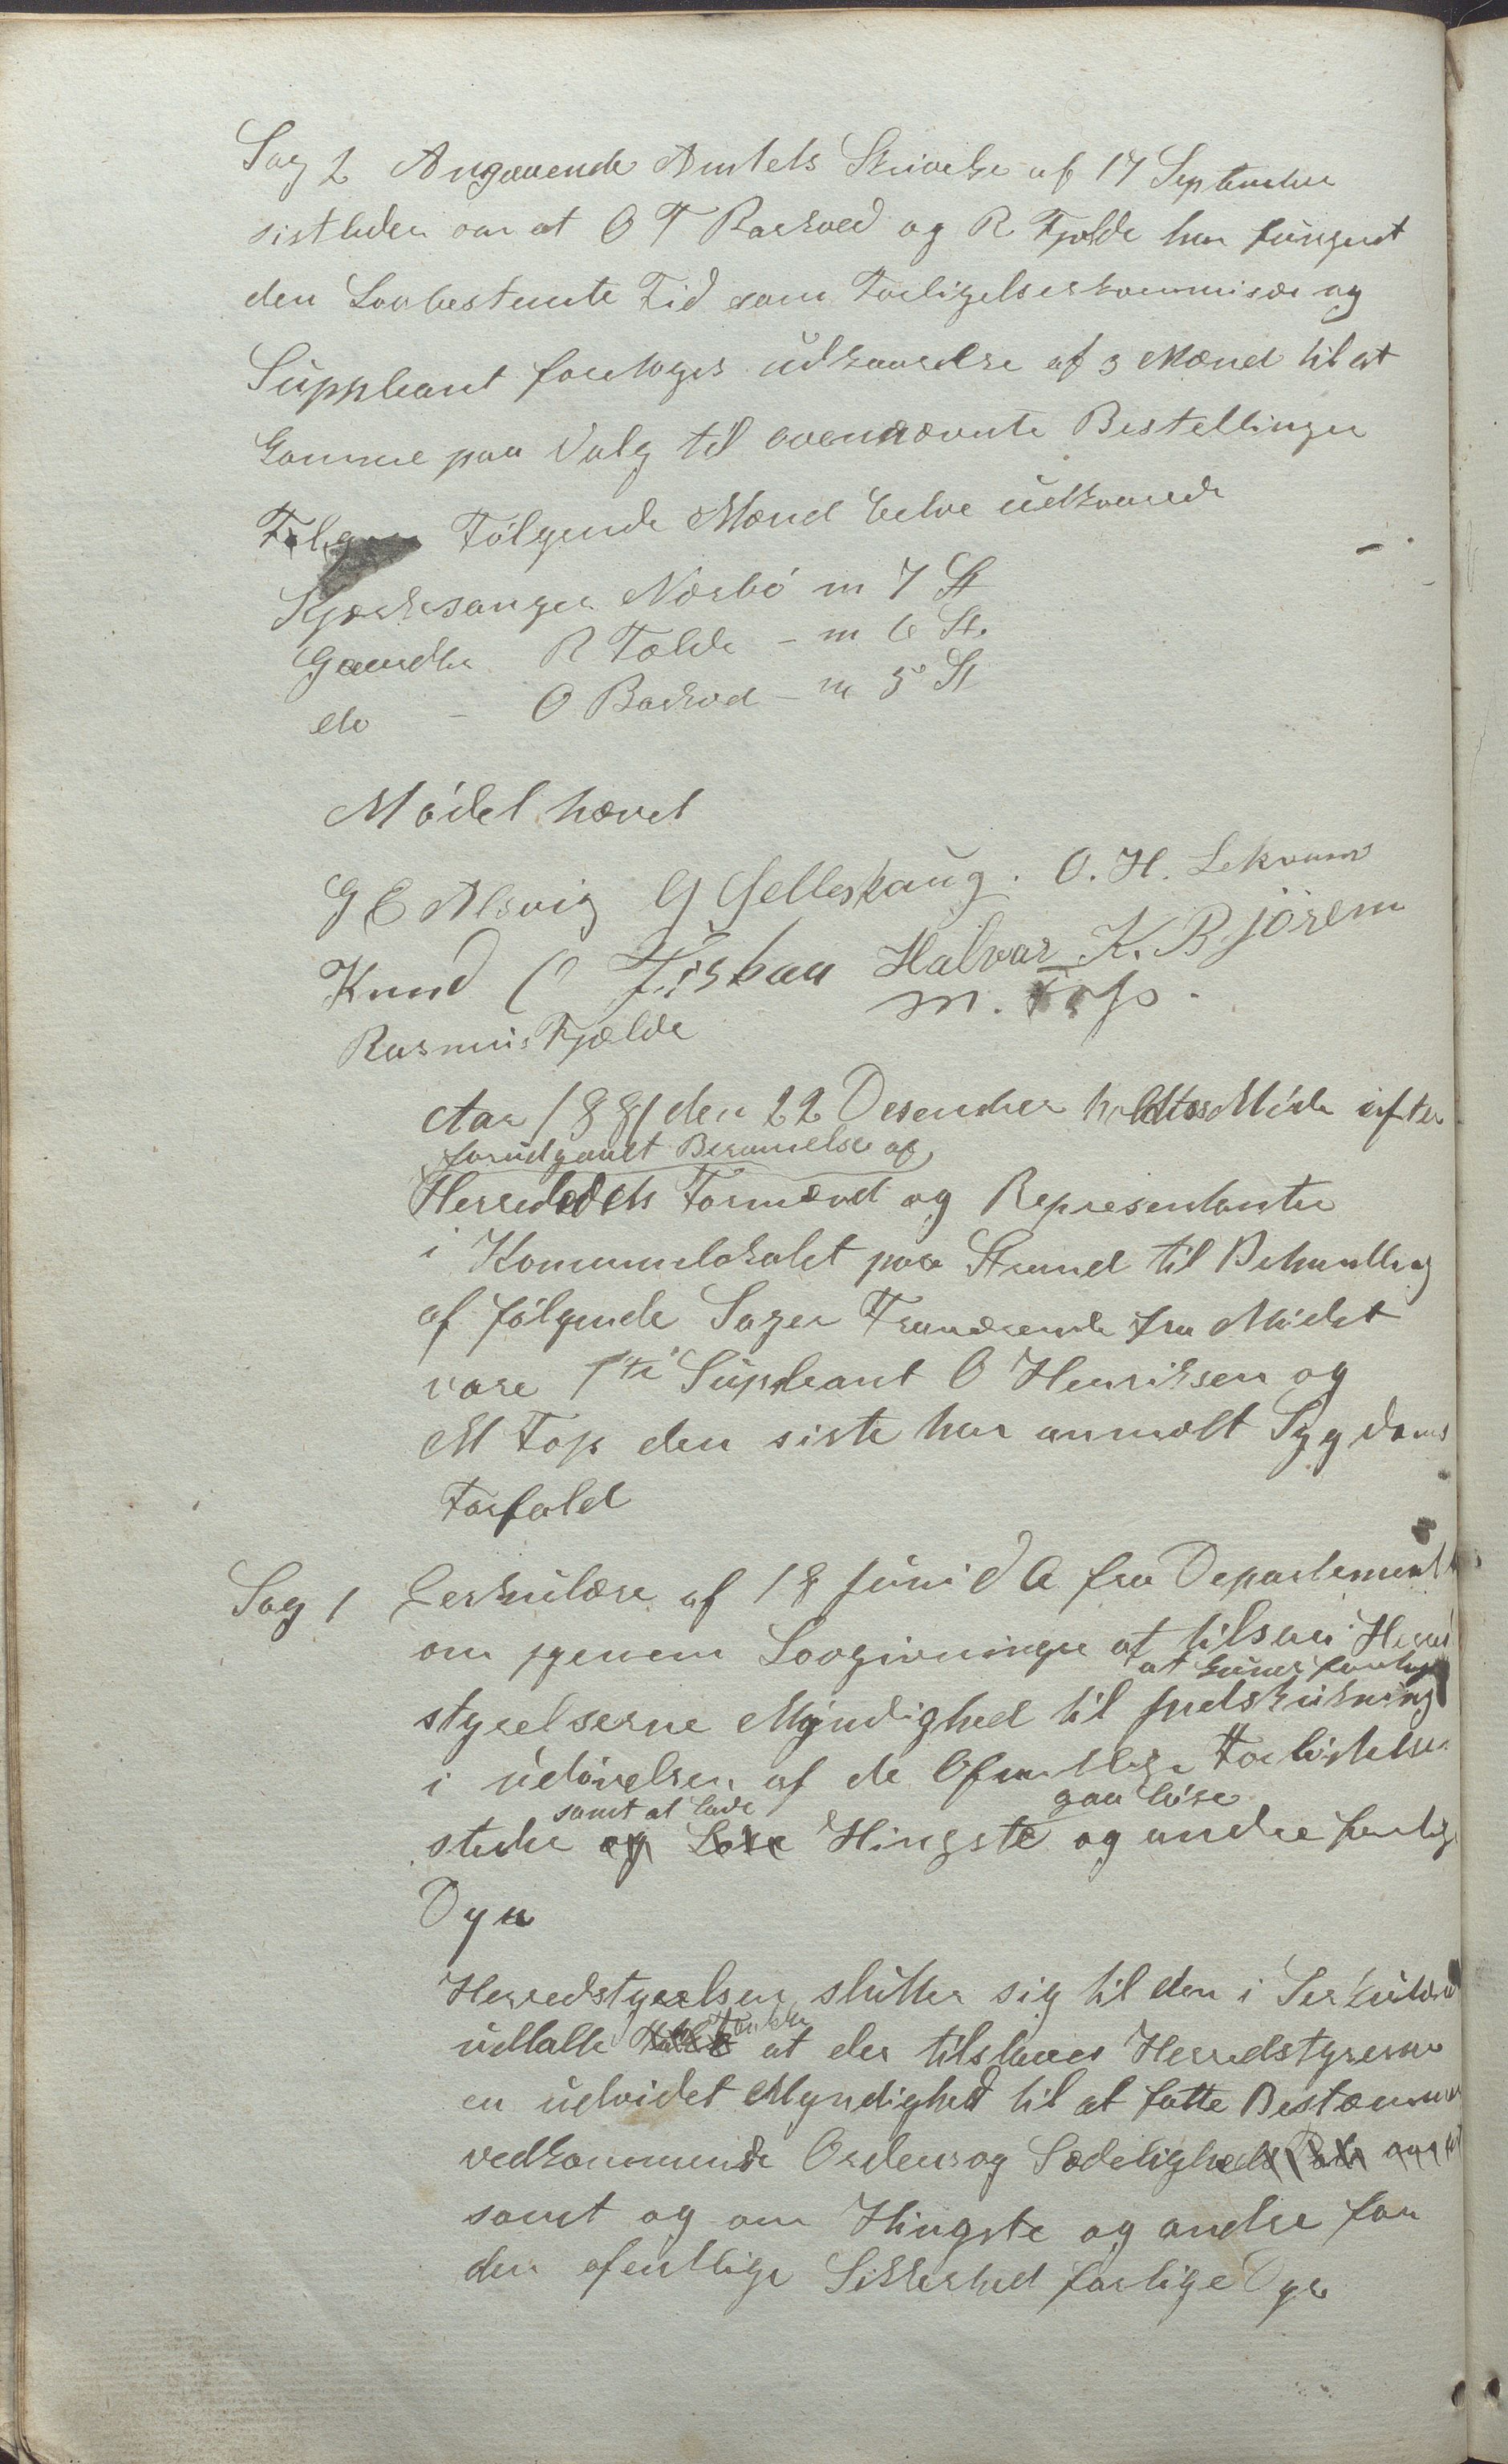 Sag 2 Angaaende Amtets Skrivelse af 17 September
sistleden om at O T Barkved og R Fjelde har fungert
den Lovbestemte Tid som Forligelseskommisær og
Suppleant foretoges udkaarelse af 3 Mænd til at
komme paa Valg til ovennævnte Bestellinger
Følgende Mænd belve udkaarede
Kjærkesanger Nærbö m 7 St
Gaardbr R Fælde - m 6 St.
do - O Barkved - m 5 St
Mödet hævet
G E Alsvig G Gelleskaug. O. H. Lekvam
Knud O Fiskaa Halvar K. Bjórem
Rasmus Fjælde M. Fops.
Aar 1881 den 22 Desember holdtes Möde efter
forudgaaet Berammelse af
Herrededets Formænd og Representanter
i Kommunelokalet paa Strand til Behandling
af følgende Sager Fraværende fra Mödet
vare 1ste Supleant O Henriksen og
M Fops den siste har anmælt Sygdoms
Forfald
Sag 1 Serkulære af 18 Juni d A fra Departement
om gjenem Lovgivningen at tilsaa Herred
at kunne foretage
styrelserne Myndighed til Indskrækning
i udövelsen af de Ofentlige Forlistelser
samt at lade gaa löse
steder og Løse Hingste og andre farlige
Dyr
Herredstyrelsen slutter sig til den i Serkulæret
udtalte Tanke at der tilstaaes Herredstyrerne
en udvidet Myndighed til at fatte Bestæmmelser
vedkommende Orden og Sædelighed
samt og om Hingste og andre for
den ofentlige Sikkerhed farlige Dyr